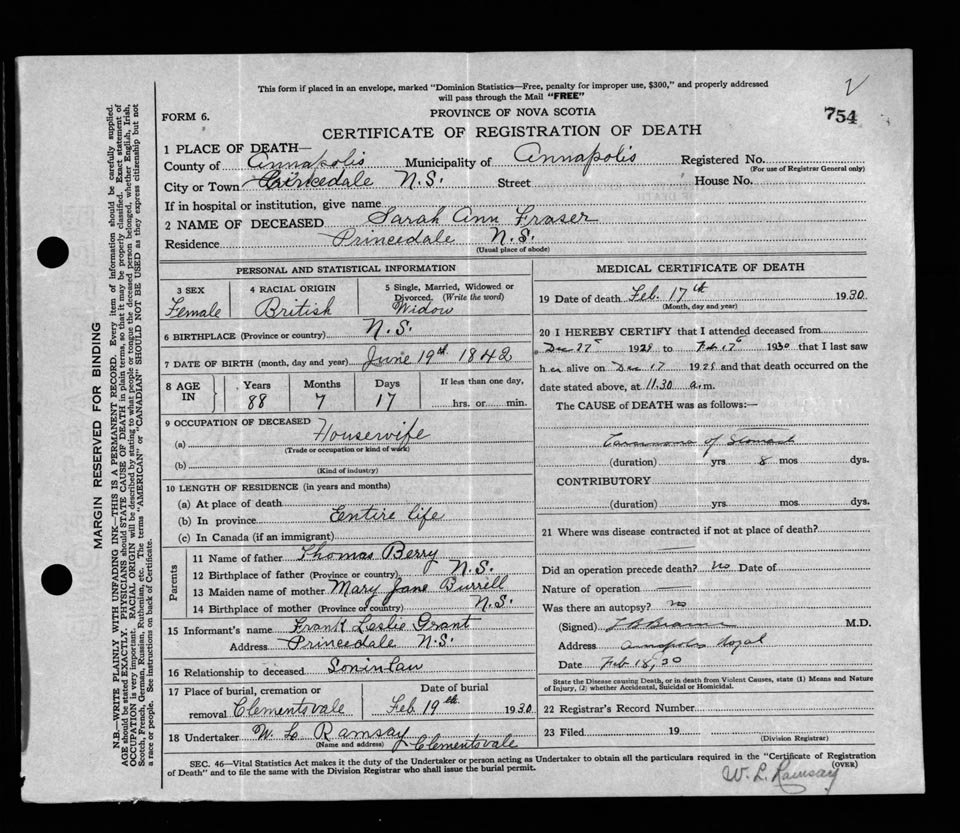 This form if placed in an envelope, marked "Dominion Statistics—Free, penalty for improper use, $300," and properly addressed
will pass through the Mail "FREE"
2
754
FORM 6.
PROVINCE OF NOVA SCOTIA
CERTIFICATE OF REGISTRATION OF DEATH
1 PLACE OF DEATH—
County of Annapolis Municipality of Annapolis Registered No.
(For use of Registrar General only)
City or Town Princedale N.S. Street House No.
If in hospital or institution, give name
2 NAME OF DECEASED Sarah Ann Fraser
Residence Princedale N.S.
(Usual place of abode)
PERSONAL AND STATISTICAL INFORMATION
3 SEX 4 RACIAL ORIGIN 5 Single, Married, Widowed or
Divorced. (Write the word)
Female British Widow
6 BIRTHPLACE (Province or country) N.S.
7 DATE OF BIRTH (month, day and year) June 19th 1842
8 AGE IN Years Months Days If less than one day,
88 7 17 hrs. or min.
9 OCCUPATION OF DECEASED
(a) Housewife
(Trade or occupation or kind of work)
(b)
(Kind of industry)
10 LENGTH OF RESIDENCE (in years and months)
(a) At place of death
(b) In province Entire life
(c) In Canada (if an immigrant)
Parents
11 Name of father Thomas Berry
12 Birthplace of father (Province or country) N.S.
13 Maiden name of mother Mary Jane Burrell
14 Birthplace of mother (Province or country) N.S.
15 Informant's name Frank Leslie Grant
Address Princedale N.S.
16 Relationship to deceased Son in law
17 Place of burial, cremation or Date of burial
removal Clementsvale Feb 19th 1930
18 Undertaker W. L. Ramsay Clementsvale
(Name and address)
MEDICAL CERTIFICATE OF DEATH
19 Date of death Feb. 17th 1930
(Month, day and year)
20 I HEREBY CERTIFY that I attended deceased from
Dec 27 1929 to Feb 17 1930 that I last saw
her alive on Dec 17 1929 and that death occurred on the
date stated above, at 11.30 a.m.
The CAUSE of DEATH was as follows:—
Carcinoma of Stomach
(duration) yrs 8 mos dys.
CONTRIBUTORY
(duration) yrs. mos. dys.
21 Where was disease contracted if not at place of death?
Did an operation precede death? No Date of
Nature of operation —
Was there an autopsy? no
(Signed) M.D.
Address Annapolis Royal
Date Feb 18, 30
State the Disease causing Death, or in death from Violent Causes, state (1) Means and Nature
of Injury, (2) whether Accidental, Suicidal or Homicidal.
22 Registrar's Record Number
23 Filed 19
(Division Registrar)
SEC. 46—Vital Statistics Act makes it the duty of the Undertaker or person acting as Undertaker to obtain all the particulars required in the "Certificate of Registration
of Death" and to file the same with the Division Registrar who shall issue the burial permit.
(OVER)
W. L. Ramsay
MARGIN RESERVED FOR BINDING
N.B.—WRITE PLAINLY WITH UNFADING INK—THIS IS A PERMANENT RECORD. Every item of information should be carefully supplied.
AGE should be stated EXACTLY. PHYSICIANS should STATE CAUSE OF DEATH in plain terms, so that it may be properly classified. Exact statement of
OCCUPATION is very important. RACIAL ORIGIN will be described by stating to what people or tongue the deceased person belonged, whether English, Irish,
Scotch, French, German, Russian, Ruthenian, etc. The terms "AMERICAN" or "CANADIAN" SHOULD NOT BE USED as they express citizenship but not
a race or people. See instructions on back of Certificate.